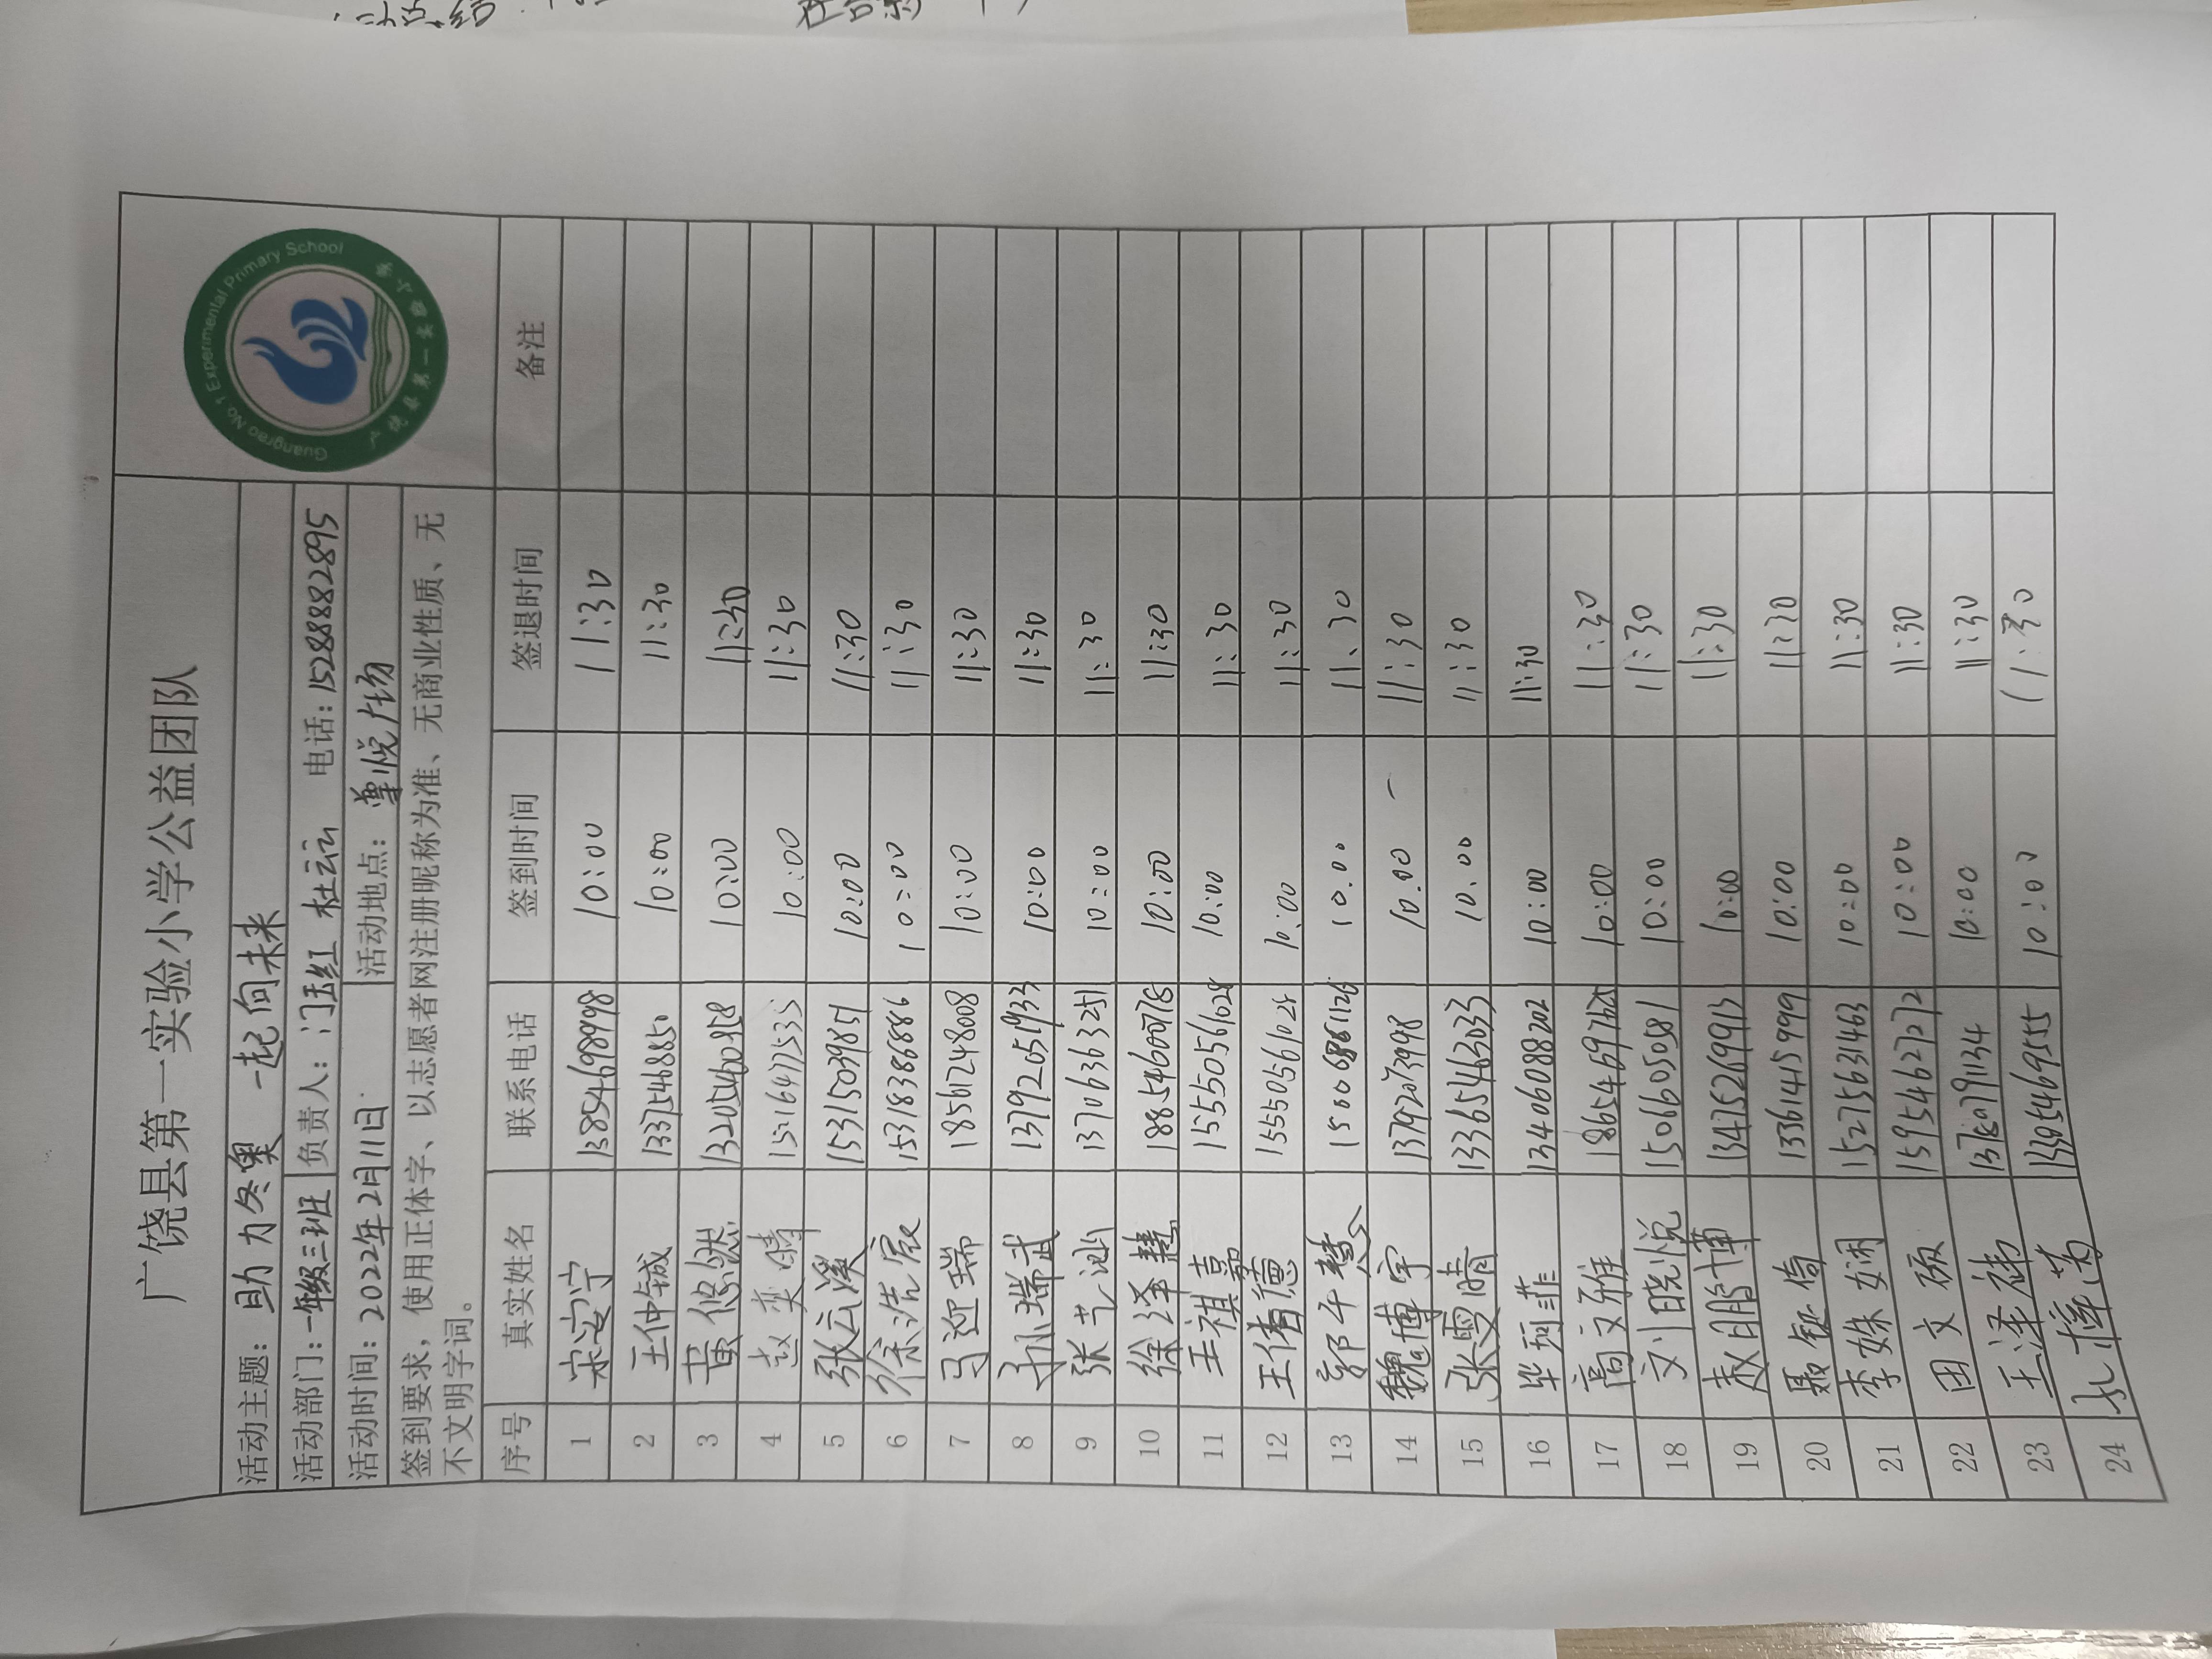 广饶县第一实验小学公益团队
Guangrao No.1 Experimental Primary School
广饶县第一实验小学
活动主题：助力冬奥 一起向未来
活动部门：一年级三班 负责人：门玉红 杜云云 电话：15288882895
活动时间：2022年2月11日 活动地点：尊悦广场
签到要求，使用正体字、以志愿者网注册昵称为准、无商业性质、无
不文明字词。
序号 真实姓名 联系电话 签到时间 签退时间 备注
1 宋安宁 13854698998 10:00 11:30
2 王仲铖 13375468850 10:00 11:30
3 黄悠然 10:00 11:30
4 赵奕晴 15216472535 10:00 11:30
5 张云溪 15315039851 10:00 11:30
6 徐浩宸 15318386886 10:00 11:30
7 马迎瑞 18561248008 10:00 11:30
8 孙瑞武 13792051933 10:00 11:30
9 张艺 13706363251 10:00 11:30
10 徐泽慧 18854600718 10:00 11:30
11 王祺嘉 15550561028 10:00 11:30
12 王脩德 15550561028 10:00 11:30
13 郭千慧 15006861126 10.00 11.30
14 魏博宇 13792073998 10.00 11:30
15 张雯晴 13365463033 10.00 11:30
16 毕珂菲 13406088202 10:00 11:30
17 高文雅 18654697625 10:00 11:30
18 刘晓悦 15066050581 10:00 11:30
19 赵鹏博 13475269913 10:00 11:30
20 聂钰倚 13361415999 10:00 11:30
21 李姝娴 15275631463 10:00 11:30
22 田文硕 15954627272 10:00 11:30
23 王泽祎 13780791134 10:00 11:30
24 13954469555 10:00 11:30